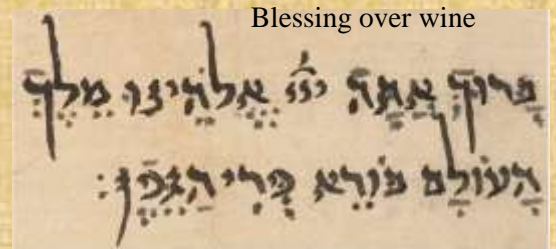 Blessing over wine
בָּרוּךְ אַתָּה ייי אֱלֹהֵינוּ מֶלֶךְ
הָעוֹלָם בּוֹרֵא פְּרִי הַגֶּפֶן: